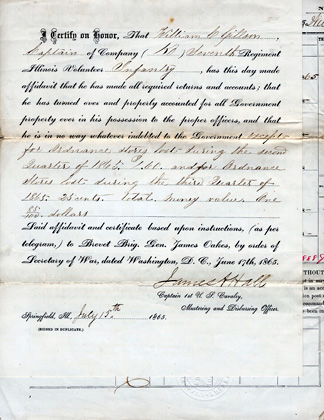 I Certify on Honor, That William C Gillson,
Captain of Company (K) Seventh Regiment
Illinois Volunteer Infantry, has this day made
affidavit that he has made all required returns and accounts; that
he has turned over and properly accounted for all Government
property ever in his possession to the proper officers, and that
he is in no way whatever indebted to the Government except
for Ordnance stores lost during the second
Quarter of 1865, and for Ordnance
Stores lost during the third Quarter of
1865. 25 cents. total money value. One
dollars
Said affidavit and certificate based upon instructions, (as per
telegram,) to Brevet Brig. Gen. James Oakes, by order of
Secretary of War, dated Washington, D. C., June 17th, 1865.
James A Hall
Captain 1st U. S. Cavalry,
Mustering and Disbursing Officer.
Springfield, Ill. July 15th 1865.
(SIGNED IN DUPLICATE.)